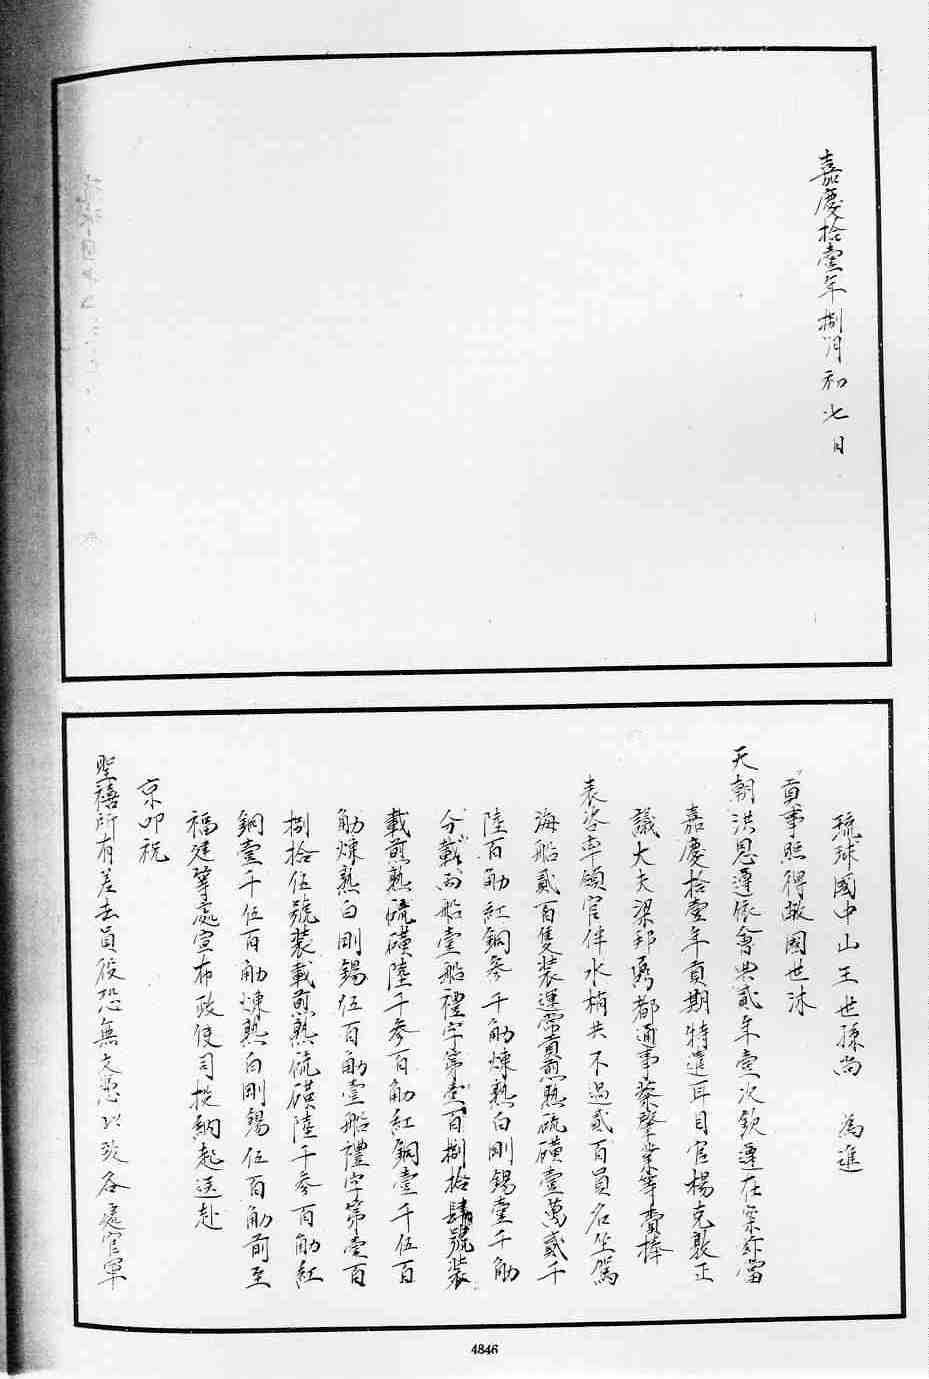 嘉慶拾壹年捌月初七日
琉球國中山王世孫尚 為進
貢事照得敝國世沐
天朝洪恩遵依會典貳年壹次欽遵在案茲當
嘉慶拾壹年貢期特遣耳目官楊克敦正
議大夫梁邦弼都通事蔡肇業等賫捧
表咨率領官伴水梢共不過貳百員名坐駕
海船貳隻裝運常貢煎熟硫磺壹萬貳千
陸百觔紅銅參千觔煉熟白剛錫壹千觔
分載兩船壹船禮字第壹百捌拾肆號裝
載煎熟硫磺陸千參百觔紅銅壹千伍百
觔煉熟白剛錫伍百觔壹船禮字第壹百
捌拾伍號裝載煎熟硫磺陸千參百觔紅
銅壹千伍百觔煉熟白剛錫伍百觔前至
福建等處宣布政使司投納起送赴
京叩祝
聖禧所有差去員役恐無文憑以致各處官軍
4846